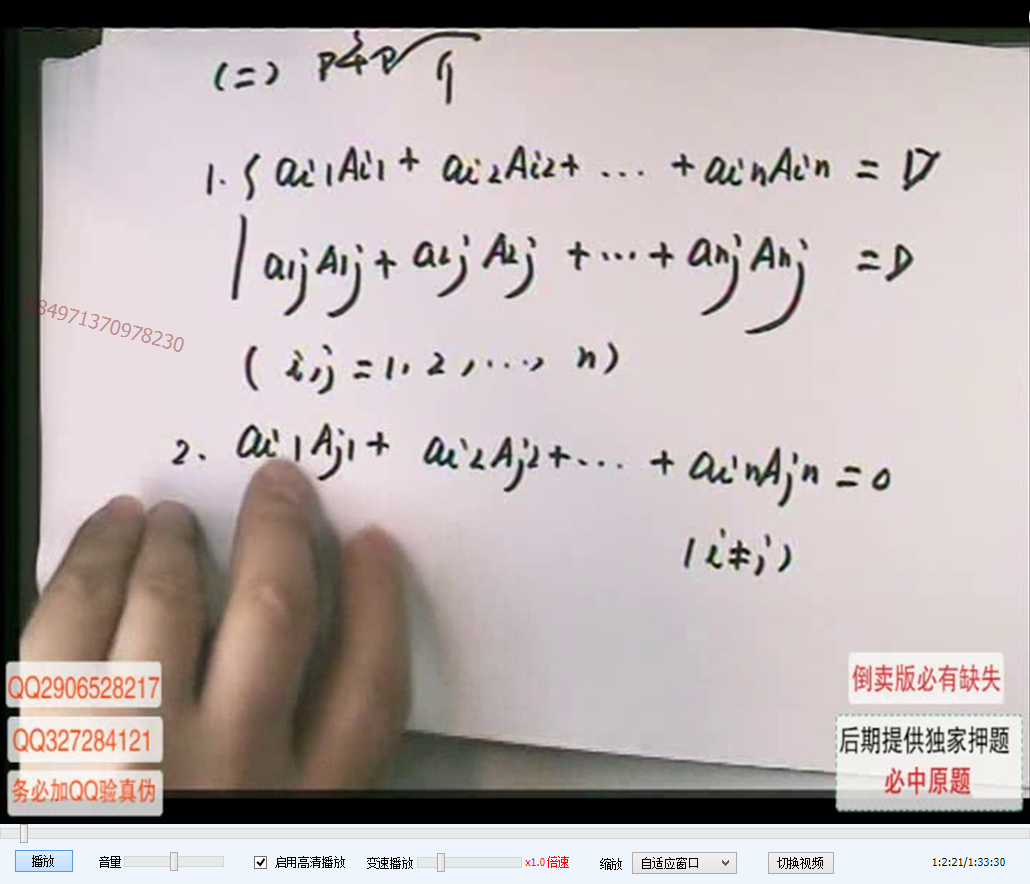 (二)
1. { ai1Ai1 + ai2Ai2 + ... + ainAin = D
a1jA1j + a2jA2j + ... + anjAnj = D
984971370978230
(i,j = 1, 2, ..., n)
2. ai1Aj1 + ai2Aj2 + ... + ainAjn = 0
(i≠j)
QQ2906528217
QQ327284121
务必加QQ验真伪
倒卖版必有缺失
后期提供独家押题
必中原题
播放 音量 启用高清播放 变速播放 x1.0倍速 缩放 自适应窗口 切换视频 1:2:21/1:33:30